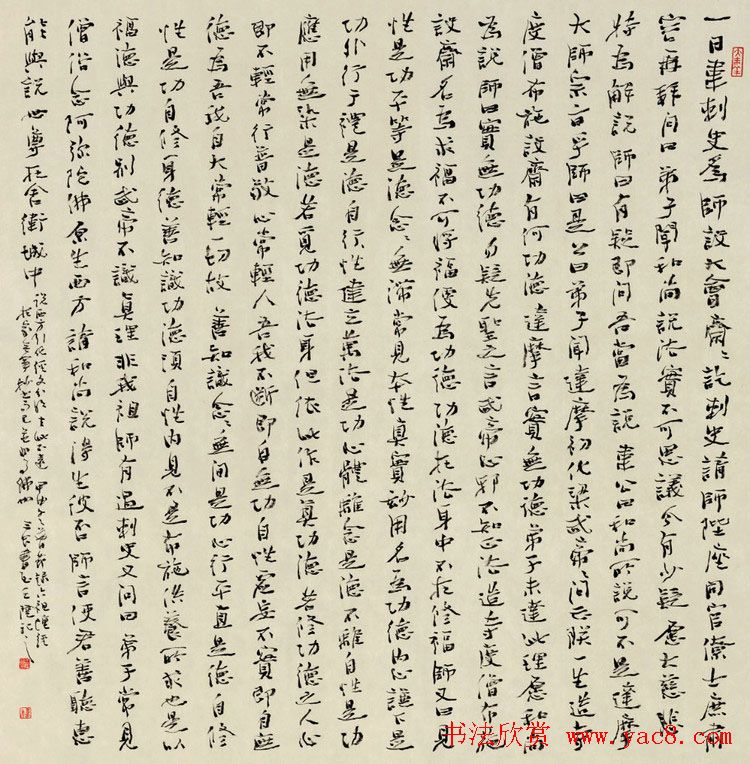 一日韋刺史為師設大會齋々訖刺史請師陞座同官僚士庶肅
容再拜問曰弟子聞和尚說法實不可思議今有少疑願大慈悲
特為解說師曰有疑即問吾當為說韋公曰和尚所說可不是達摩
大師宗旨乎師曰是公曰弟子聞達摩初化梁武帝々問云朕一生造寺
度僧布施設齋有何功德達摩言實無功德弟子未達此理願和尚
為說師曰實無功德勿疑先聖之言武帝心邪不知正法造寺度僧布施
設齋名為求福不可將福便為功德功德在法身中不在修福師又曰見
性是功平等是德念々無滯常見本性真實妙用名為功德內心謙下是
功外行于禮是德自性建立萬法是功心體離念是德不離自性是功
應用無染是德若覓功德法身但依此作是真功德若修功德之人心
即不輕常行普敬心常輕人吾我不斷即自無功自性虛妄不實即自無
德為吾我自大常輕一切故善知識念々無間是功心行平直是德自修
性是功自修身德善知識功德須自性內見不是布施供養所求也是以
福德與功德別武帝不識真理非我祖師有過刺史又問曰弟子常見
僧俗念阿彌陀佛願生西方請和尚說得生彼否師言使君善聽惠
能與說世尊在舍衛城中
說西方引化經文
書法欣賞 www.yac8.com